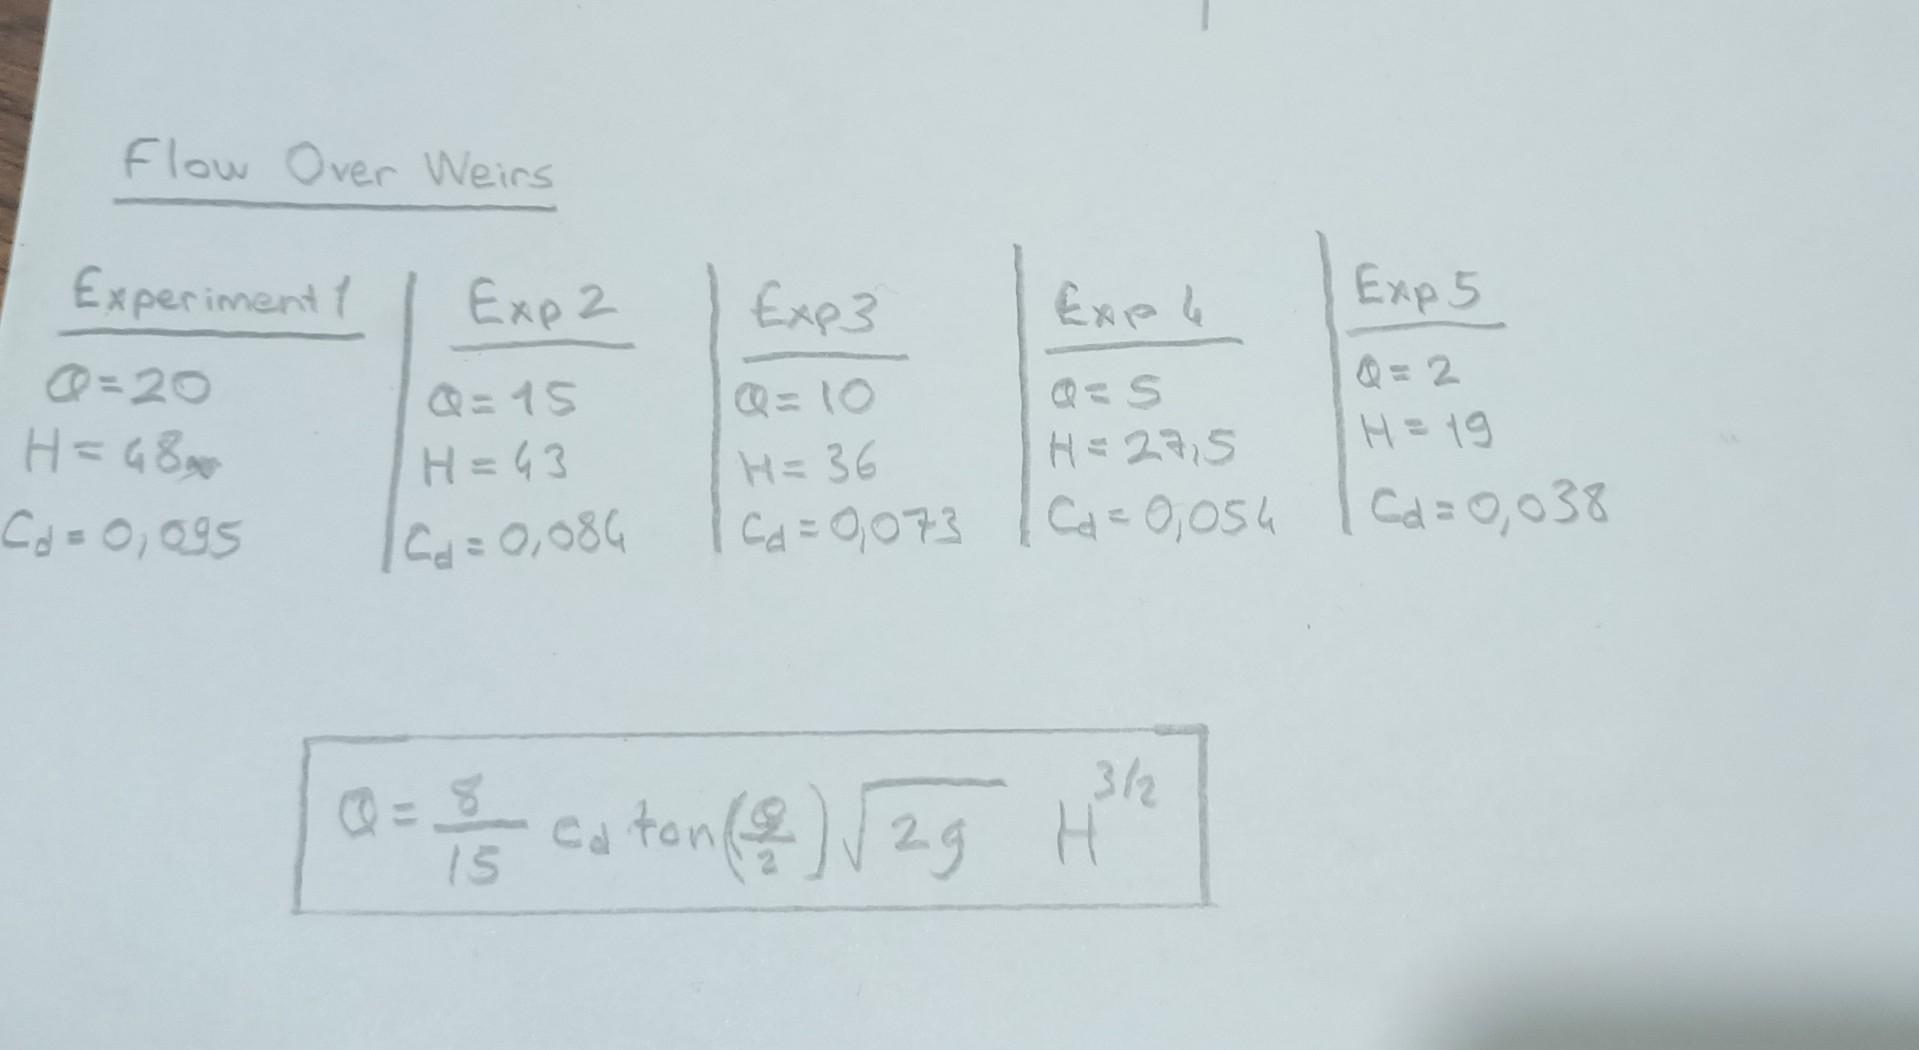 Flow Over Weirs
Experiment 1
Q=20
H=48
Cd=0,095
Exp 2
Q=15
H=43
Cd=0,084
Exp3
Q=10
H=36
Cd=0,073
Exp 4
Q=5
H=27,5
Cd=0,054
Exp 5
Q=2
H=19
Cd=0,038
Q= 8/15 Cd tan(θ/2) √2g H^3/2